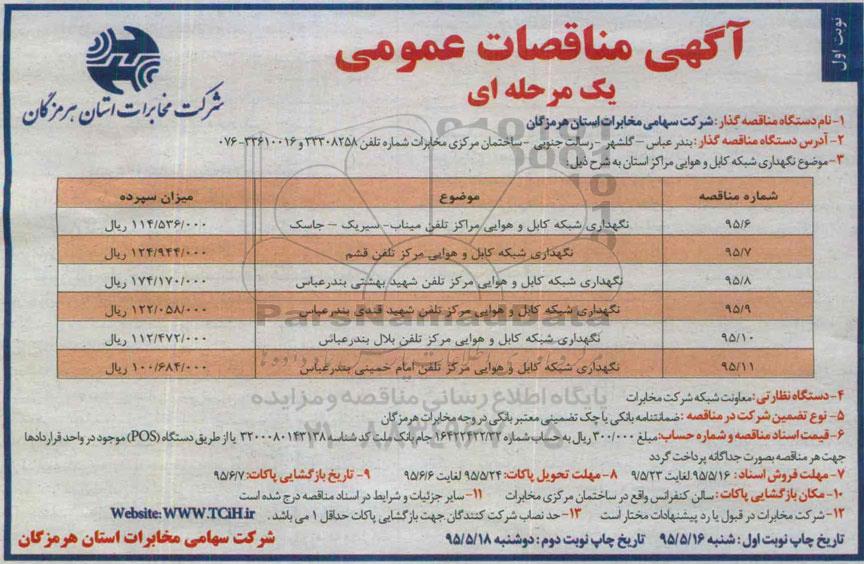 نوبت اول
آگهی مناقصات عمومی
یک مرحله ای
شرکت مخابرات استان هرمزگان
۱- نام دستگاه مناقصه گذار: شرکت سهامی مخابرات استان هرمزگان
۲- آدرس دستگاه مناقصه گذار: بندر عباس – گلشهر – رسالت جنوبی – ساختمان مرکزی مخابرات شماره تلفن ۳۳۳۰۸۲۵۸ و ۳۳۶۱۰۰۱۶-۰۷۶
۳- موضوع نگهداری شبکه کابل و هوایی مراکز استان به شرح ذیل:
شماره مناقصه موضوع میزان سپرده
۹۵/۶ نگهداری شبکه کابل و هوایی مراکز تلفن میناب- سیریک – جاسک ۱۱۴/۵۳۶/۰۰۰ ریال
۹۵/۷ نگهداری شبکه کابل و هوایی مرکز تلفن قشم ۱۲۴/۹۴۴/۰۰۰ ریال
۹۵/۸ نگهداری شبکه کابل و هوایی مرکز تلفن شهید بهشتی بندرعباس ۱۷۴/۱۷۰/۰۰۰ ریال
۹۵/۹ نگهداری شبکه کابل و هوایی مرکز تلفن شهید قندی بندرعباس ۱۲۲/۰۵۸/۰۰۰ ریال
۹۵/۱۰ نگهداری شبکه کابل و هوایی مرکز تلفن بلال بندرعباس ۱۱۲/۴۷۲/۰۰۰ ریال
۹۵/۱۱ نگهداری شبکه کابل و هوایی مرکز تلفن امام خمینی بندرعباس ۱۰۰/۶۸۴/۰۰۰ ریال
ParsNamadData
پایگاه اطلاع رسانی مناقصه و مزایده
۴- دستگاه نظارتی: معاونت شبکه شرکت مخابرات
۵- نوع تضمین شرکت در مناقصه: ضمانتنامه بانکی یا چک تضمینی معتبر بانکی در وجه مخابرات هرمزگان
۶- قیمت اسناد مناقصه و شماره حساب: مبلغ ۳۰۰/۰۰۰ ریال به حساب شماره ۱۶۴۲۲۴۳۲/۳۲ جام بانک ملت کد شناسه ۳۲۰۰۰۸۰۱۴۳۱۳۸ یا از طریق دستگاه (POS) موجود در واحد قراردادها
جهت هر مناقصه بصورت جداگانه پرداخت گردد
۷- مهلت فروش اسناد: ۹۵/۵/۱۶ لغایت ۹/۵/۲۳ ۸- مهلت تحویل پاکات: ۹۵/۵/۲۴ لغایت ۹۵/۶/۶ ۹- تاریخ بازگشایی پاکات: ۹۵/۶/۷
۱۰- مکان بازگشایی پاکات: سالن کنفرانس واقع در ساختمان مرکزی مخابرات ۱۱- سایر جزئیات و شرایط در اسناد مناقصه درج شده است
۱۲- شرکت مخابرات در قبول یا رد پیشنهادات مختار است ۱۳- حد نصاب شرکت کنندگان جهت بازگشایی پاکات حداقل ۱ می باشد. Website: WWW.TCiH.ir
تاریخ چاپ نوبت اول: شنبه ۹۵/۵/۱۶ تاریخ چاپ نوبت دوم: دوشنبه ۹۵/۵/۱۸ شرکت سهامی مخابرات استان هرمزگان